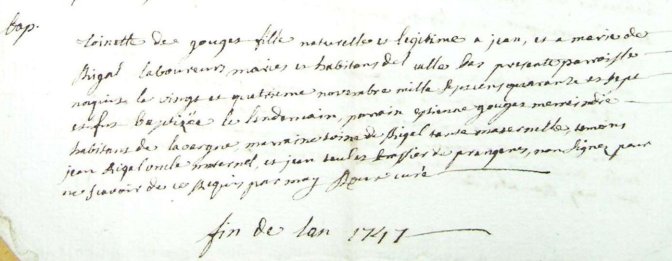 bap.
toinette de gouges fille naturelle et legitime a jean, et a marie de
Rigal laboureurs, mariés et habitans del valle bas presente parroisse
naquit le vingt et quatrieme novembre mille septcens quarante et sept
et fut baptizée le lendemain, parrain estienne gouges
habitans de lavergne marraine toinete Rigal tante maternelle, temoins
jean Rigal oncle maternel, et jean brassier de prangeres, non signés pour
ne scavoir de ce Requis par moy curé
fin de lan 1747